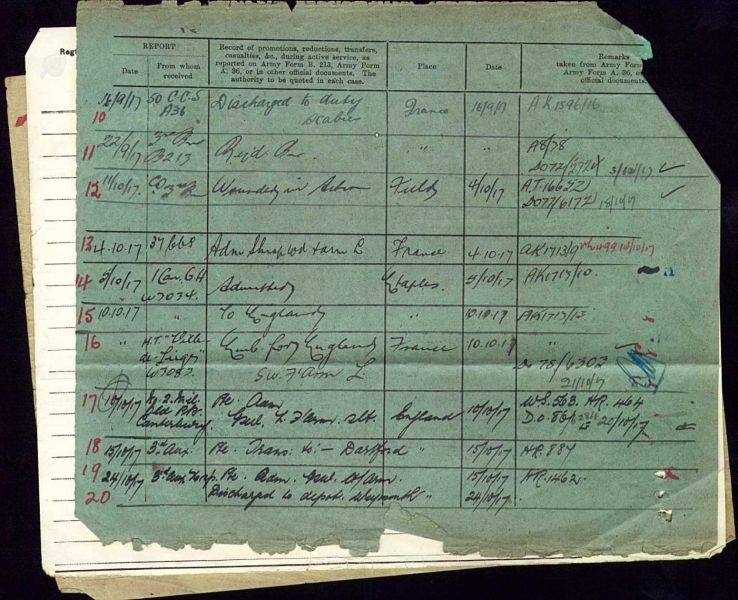 REPORT
Date
From whom received
Record of promotions, reductions, transfers,
casualties, &c., during active service, as
reported on Army Form B. 213, Army Form
A. 36, or in other official documents. The
authority to be quoted in each case.
Place
Date
Remarks
taken from Army Form
Army Form A. 36, o
official documents
Reg
10 16/9/17 50 C.C.S A36 Discharged to duty Scabies France 16/9/17 AK1596/16
11 22/9/17 B213 Rejd " " A8/78
DO72/2720
12 11/10/17 CO Wounded in Action Field 4/10/17 A.T.16652
DO77/6172 18/10/17
13 4.10.17 37 CCS Adm Shrap Wd Farm L France 4.10.17 AK1713/9
14 5/10/17 1 Can. G.H W3034 Admitted Etaples 5/10/17 AK1713/10
15 10.10.17 " To England " 10.10.17 AK1713/12
16 " H.T. "Ville de Liege" W3083 Emb. for England France 10.10.17 "
S.W. F'Arm L. Do 78/6302
21/10/17
17 10/10/17 Mil. Canterbury Re. Adm England 10/10/17 W.S.568. HP. 464
Gsw. L. F'arm slt. D.O. 88/ 20/10/17
18 15/10/17 3rd Aux. Re. Trans: to:- Dartford " 15/10/17 HP. 884
19 24/10/17 3rd Aux Hosp. Re. Adm. Gsw. F/arm. 15/10/17 HP.1462
20 Discharged to depot. Weymouth " 24/10/17